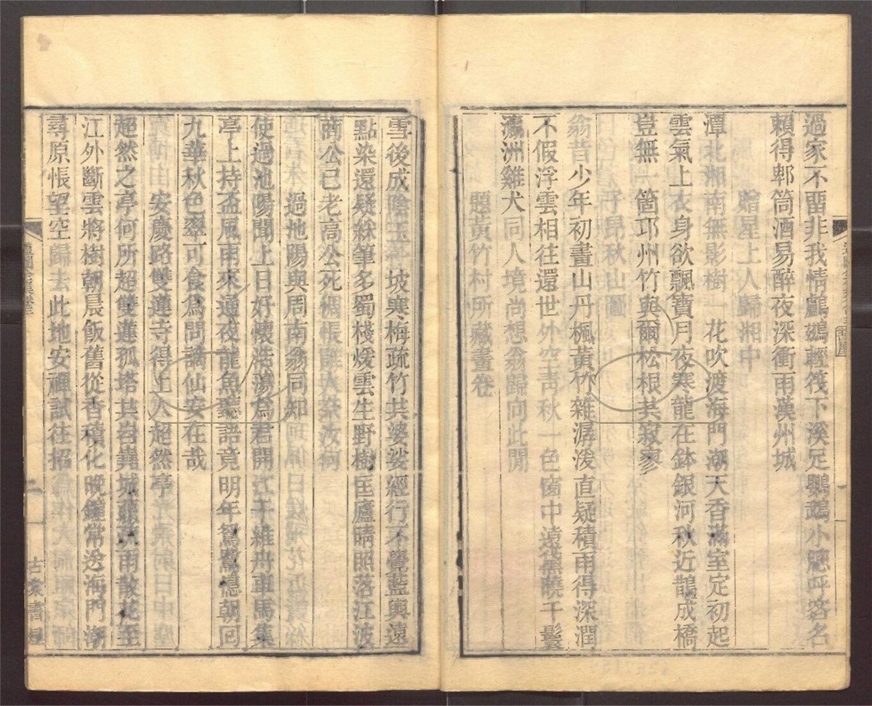 過家不畱非我情鸕鷀輕筏下溪足鸚鵡小
賴得郫筒酒易醉夜深衝雨漢州城
贈星上人歸湘中
潭北湘南無影樹一花吹渡海門潮天香滿室定初起
雲氣上衣身欲飄寶月夜寒龍在鉢銀河秋近鵲成橋
豈無一箇邛州竹與爾松根共寂寥
子昂秋山圖
翁昔少年初畫山丹楓黃竹雜潺湲直疑積雨得深潤
不假浮雲相往還世外空靑秋一色窗中遠黛曉千鬟
瀛洲雞犬同人境尚想翁歸向此閒
題黃竹村所藏畫卷
雪後成陰玉平坡寒梅疏竹共婆娑經行不覺藍輿遠
點染還疑絲筆多蜀棧煖雲生野樹匡廬晴照落江波
商公已老高公死惆悵
過池陽與周南翁同知
使過池陽聞上日好懷浩蕩爲君開江干維舟車馬集
亭上持盃風雨來通夜龍魚聽語竟明年鴛鷺憶朝回
九華秋色翠可食爲問謫仙安在哉
安慶路雙蓮寺得上人超然亭
超然之亭何所超雙蓮孤塔共岧嶤城頭雨散花至
江外斷雲將樹朝晨飯舊從香積化晚鐘常送海門潮
尋原悵望空歸去此地安禪試往招
古棠書屋